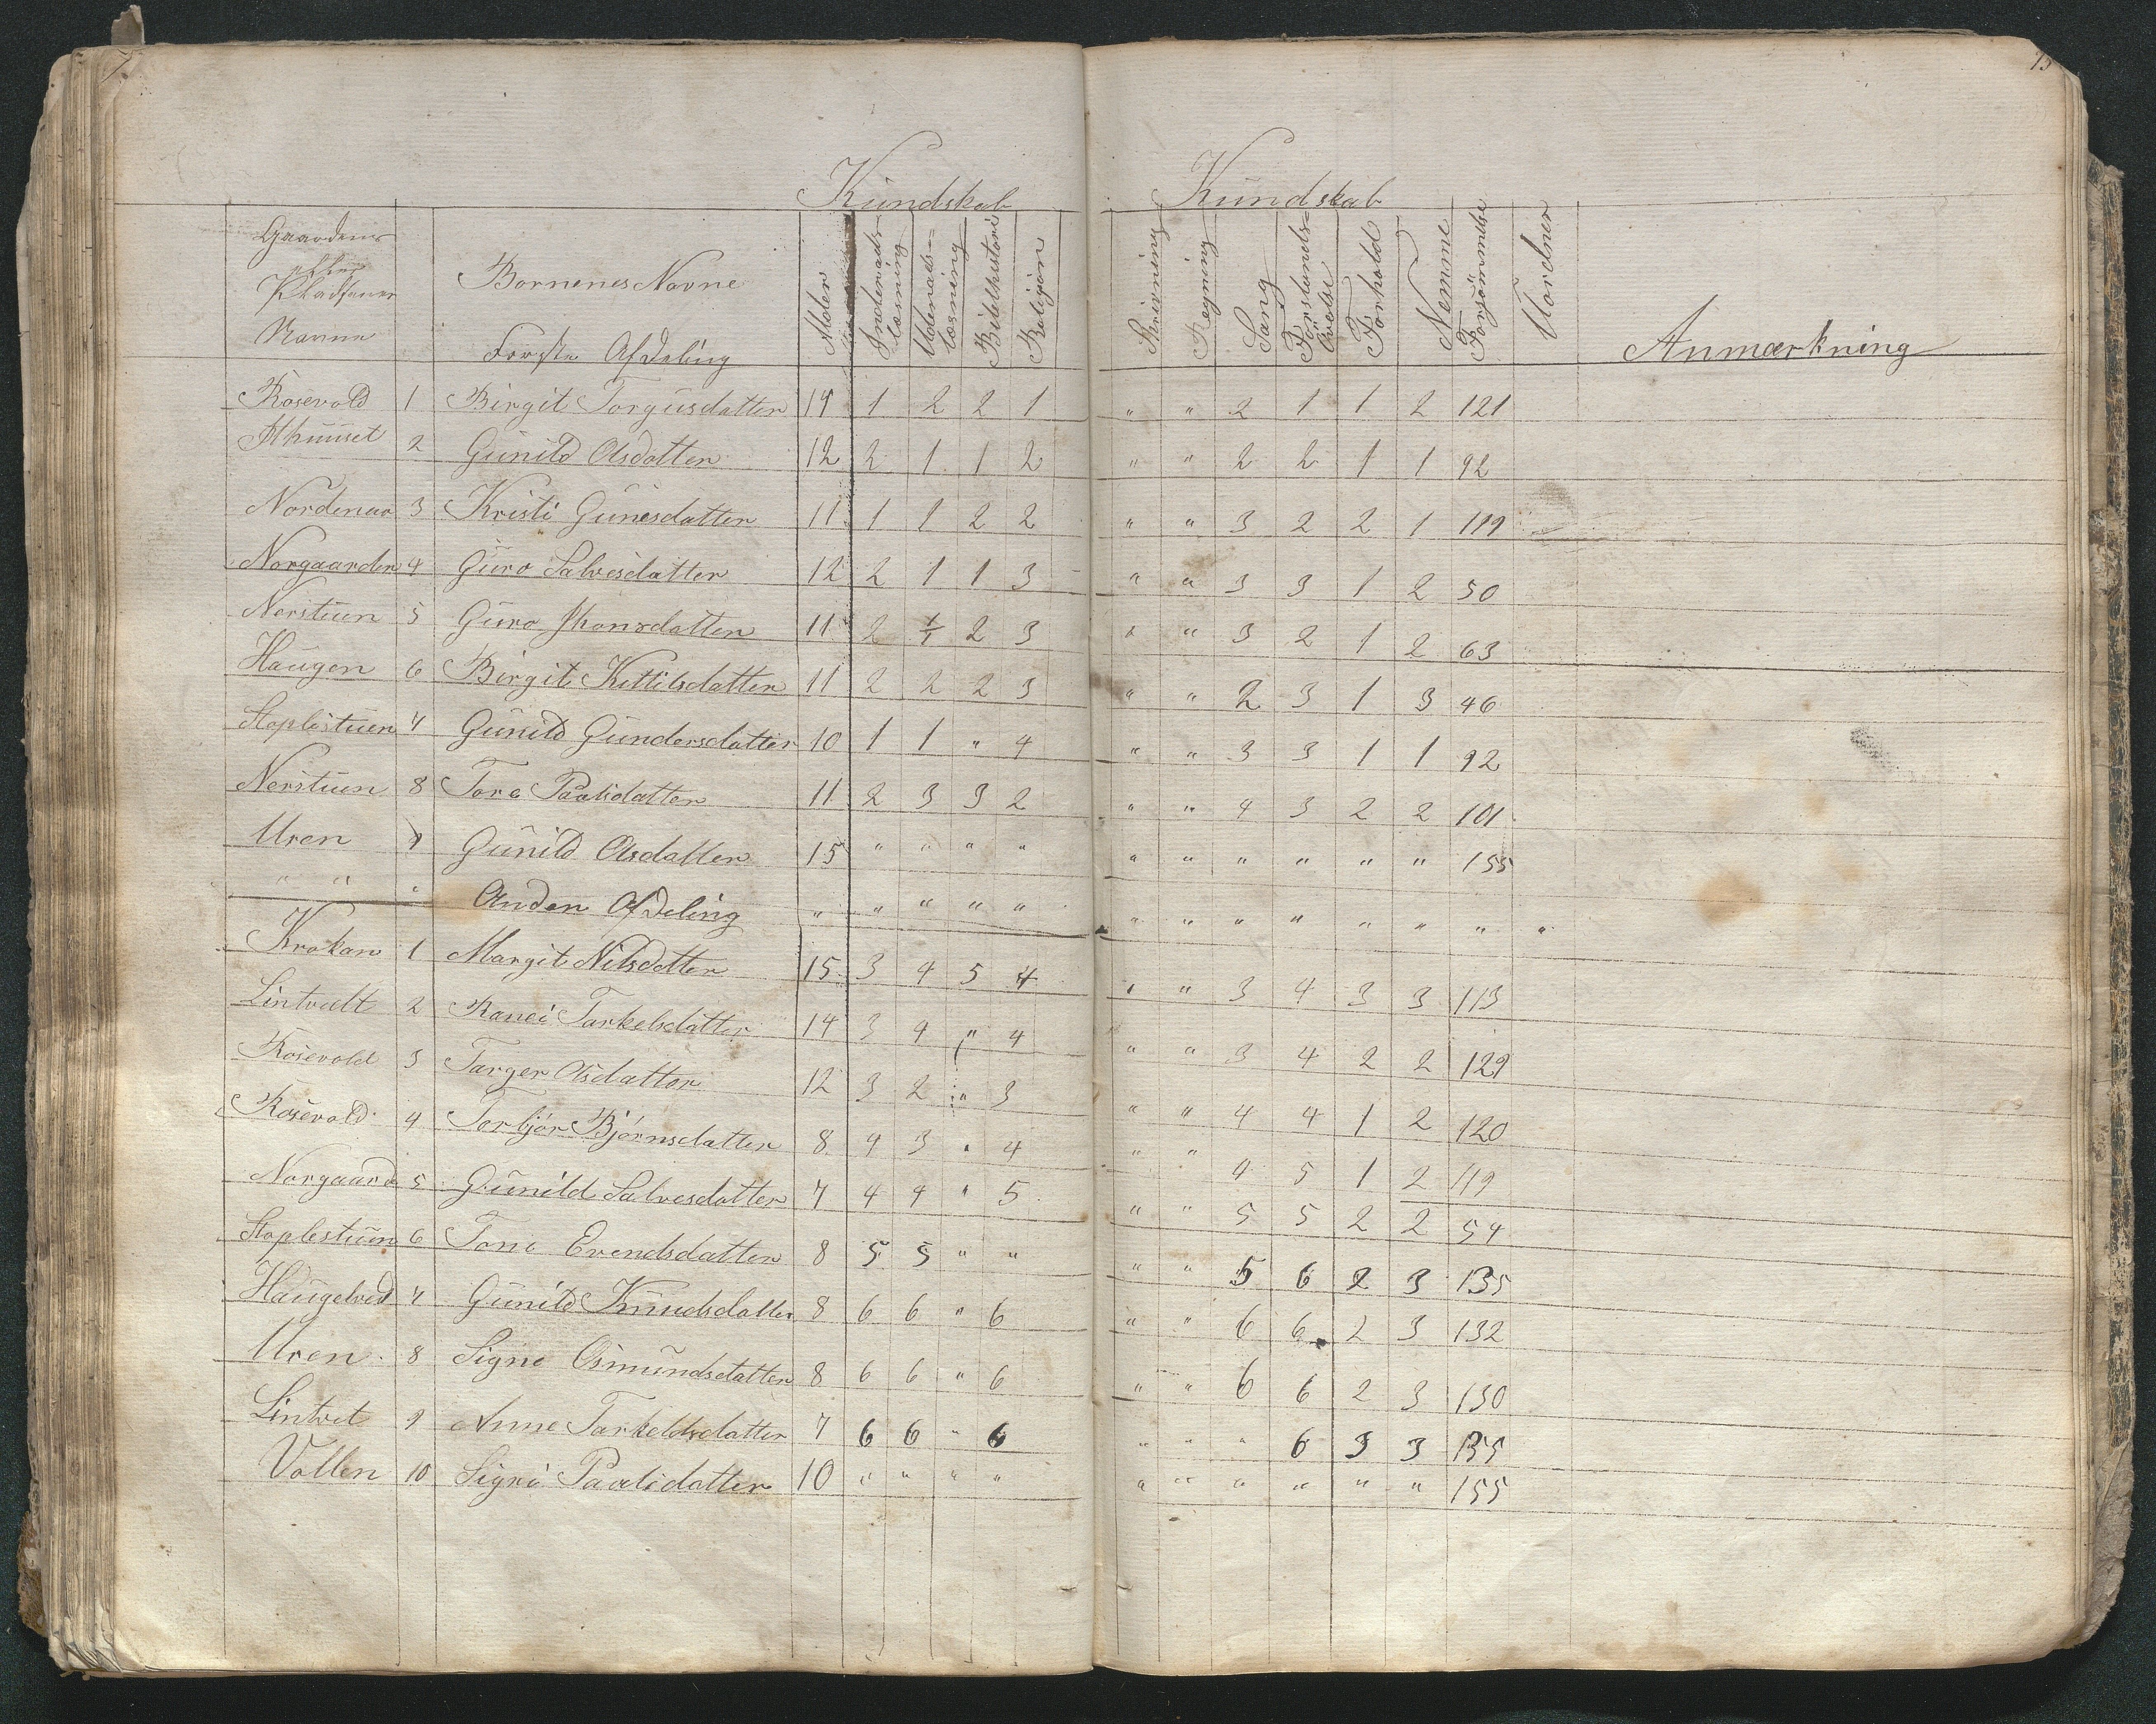 15
Kundskab Kundskab
Gaardens eller Pladsenes Navne Børnenes Navne Alder Indenadslæsning Udenadslæsning Bibelhistorie Religion Skrivning Regning Sang Forstandsøvelse Forhold Nemme Forsømmelse Uordner Anmærkning
Første Afdeling
Rosevold 1 Birgit Torgusdatter 14 1 2 2 1 " " 2 1 1 2 121
2 Gunild Olsdatter 12 2 1 1 2 " " 2 2 1 1 92
Nordenaa 3 Kristi Gunesdatter 11 1 1 2 2 " " 3 2 2 1 119
Norgaarden 4 Guro Salvesdatter 12 2 1 1 3 " " 3 3 1 2 50
Nerstuen 5 Guro Jhonsdatter 11 2 1/1 2 3 " " 3 2 1 2 63
Haugen 6 Birgit Kittilsdatter 11 2 2 2 3 " " 2 3 1 3 46
Staplestuen 7 Gunild Gundersdatter 10 1 1 " 4 " " 3 3 1 1 92
Nerstuen 8 Tore Paalsdatter 11 2 3 3 2 " " 4 3 2 2 101
Uren 9 Gunild Olsdatter 15 " " " " " " " " " " 155
" " " Anden Afdeling " " " " " " " " " " " " "
Krokan 1 Margit Nilsdatter 15 3 4 5 4 " " 3 4 3 3 113
Lintvedt 2 Ranei Tarkelsdatter 14 3 4 " 4 " " 3 4 2 2 129
Rosevold 3 Targer Olsdatter 12 3 2 " 3 " " 4 4 1 2 120
Rosevold 4 Torbjør Bjørnsdatter 8 4 3 " 4 " " 4 5 1 2 119
Norgaard 5 Gunild Salvesdatter 7 4 4 " 5 " " 5 5 2 2 54
Staplestuen 6 Tone Evendsdatter 8 5 5 " " " " 5 6 2 3 135
Haugelred 7 Gunild Knudsdatter 8 6 6 " 6 " " 6 6 2 3 132
Uren 8 Signe Osmundsdatter 8 6 6 " 6 " " 6 6 2 3 130
Lintvet 9 Anne Tarkeldsdatter 7 6 6 " 6 " " " 6 3 3 135
Vollen 10 Signe Paalsdatter 10 " " " " " " " " " " 155